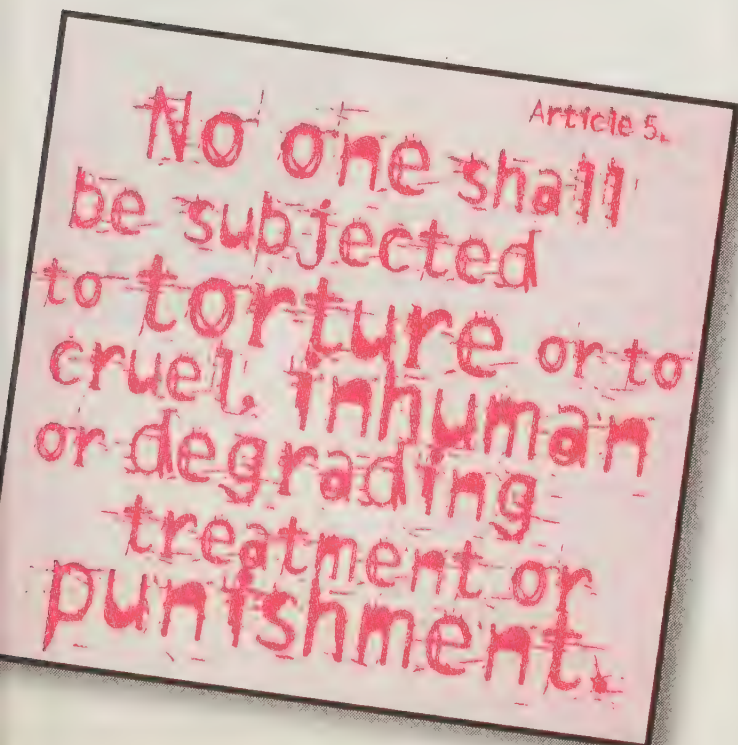 Article 5.
No one shall
be subjected
to torture or to
cruel, inhuman
or degrading
treatment or
punishment.